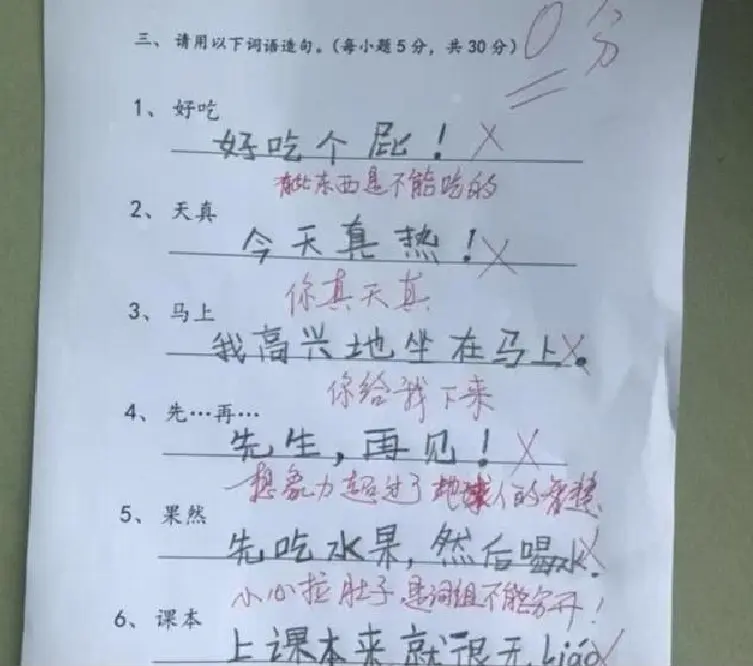 三、请用以下词语造句。(每小题5分，共30分)
0分
1、好吃
好吃个屁！
有些东西是不能吃的
2、天真
今天真热！
你真天真
3、马上
我高兴地坐在马上。
你给我下来
4、先…再…
先生，再见！
想象力超过了地球人的智慧
5、果然
先吃水果，然后喝水。
小心拉肚子，是词组不能分开！
6、课本
上课本来就很无liáo